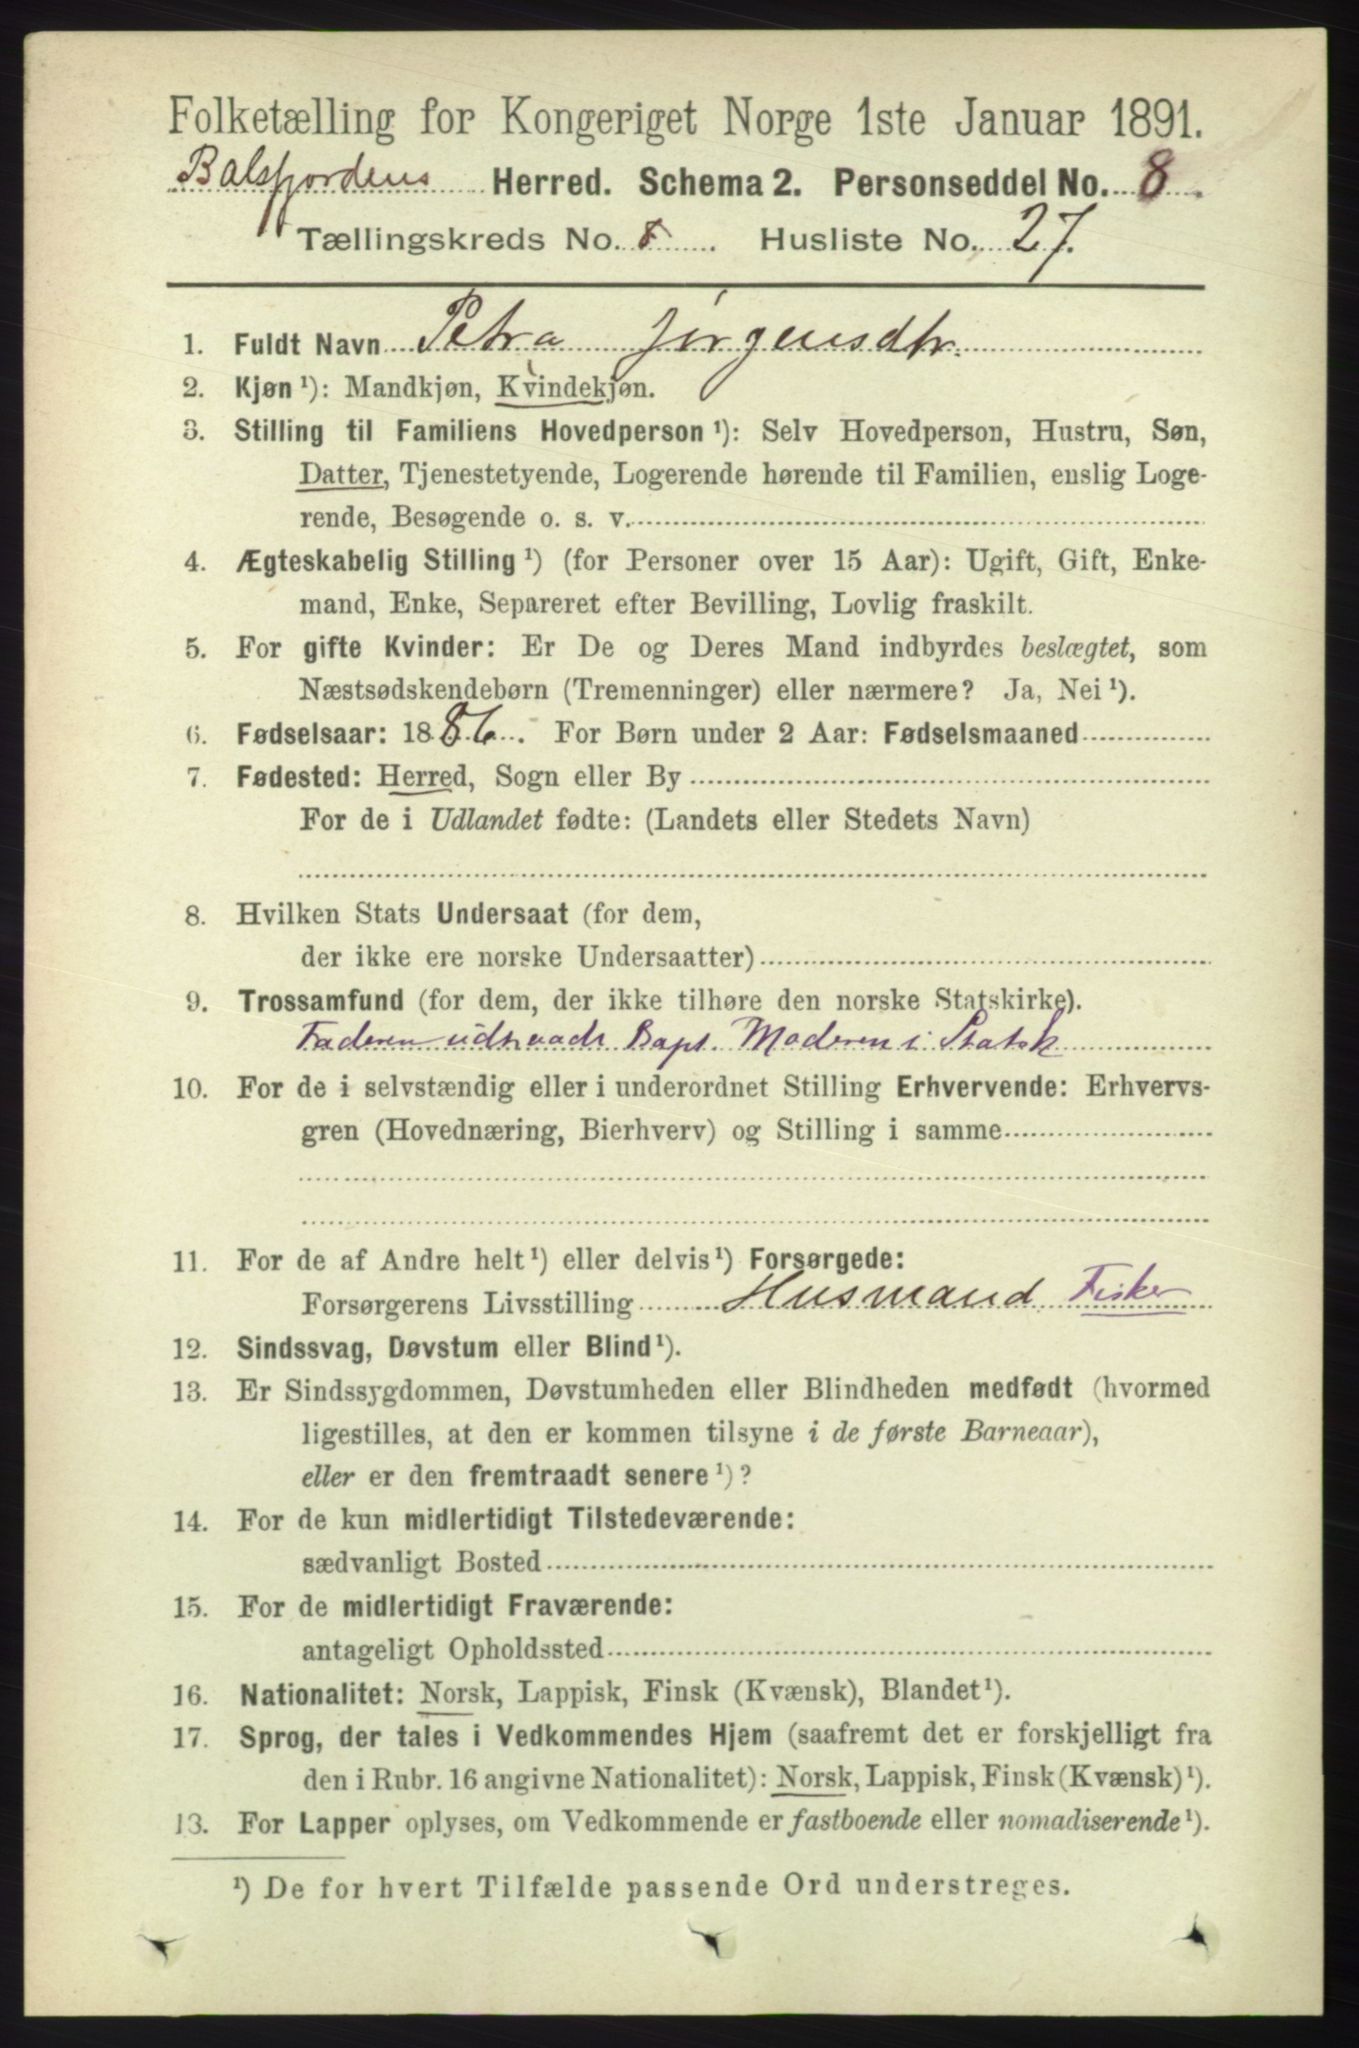 Folketælling for Kongeriget Norge 1ste Januar 1891.
Balsfjordens Herred. Schema 2. Personseddel No. 8.
Tællingskreds No. 8. Husliste No. 27.
1. Fuldt Navn Petra Jörgensdtr.
2. Kjøn ¹): Mandkjøn, Kvindekjøn.
3. Stilling til Familiens Hovedperson ¹): Selv Hovedperson, Hustru, Søn,
Datter, Tjenestetyende, Logerende hørende til Familien, enslig Loge-
rende, Besøgende o. s. v.
4. Ægteskabelig Stilling ¹) (for Personer over 15 Aar): Ugift, Gift, Enke-
mand, Enke, Separeret efter Bevilling, Lovlig fraskilt.
5. For gifte Kvinder: Er De og Deres Mand indbyrdes beslægtet, som
Næstsødskendebørn (Tremenninger) eller nærmere? Ja, Nei ¹).
6. Fødselsaar: 1886. For Børn under 2 Aar: Fødselsmaaned
7. Fødested: Herred, Sogn eller By
For de i Udlandet fødte: (Landets eller Stedets Navn)
8. Hvilken Stats Undersaat (for dem,
der ikke ere norske Undersaatter)
9. Trossamfund (for dem, der ikke tilhøre den norske Statskirke).
Faderen udtraadt Bapt. Moderen i Statsk
10. For de i selvstændig eller i underordnet Stilling Erhvervende: Erhvervs-
gren (Hovednæring, Bierhverv) og Stilling i samme
11. For de af Andre helt ¹) eller delvis ¹) Forsørgede:
Forsørgerens Livsstilling Husmand. Fisker
12. Sindssvag, Døvstum eller Blind ¹).
13. Er Sindssygdommen, Døvstumheden eller Blindheden medfødt (hvormed
ligestilles, at den er kommen tilsyne i de første Barneaar),
eller er den fremtraadt senere ¹)?
14. For de kun midlertidigt Tilstedeværende:
sædvanligt Bosted
15. For de midlertidigt Fraværende:
antageligt Opholdssted
16. Nationalitet: Norsk, Lappisk, Finsk (Kvænsk), Blandet ¹).
17. Sprog, der tales i Vedkommendes Hjem (saafremt det er forskjelligt fra
den i Rubr. 16 angivne Nationalitet): Norsk, Lappisk, Finsk (Kvænsk) ¹).
13. For Lapper oplyses, om Vedkommende er fastboende eller nomadiserende ¹).
¹) De for hvert Tilfælde passende Ord understreges.